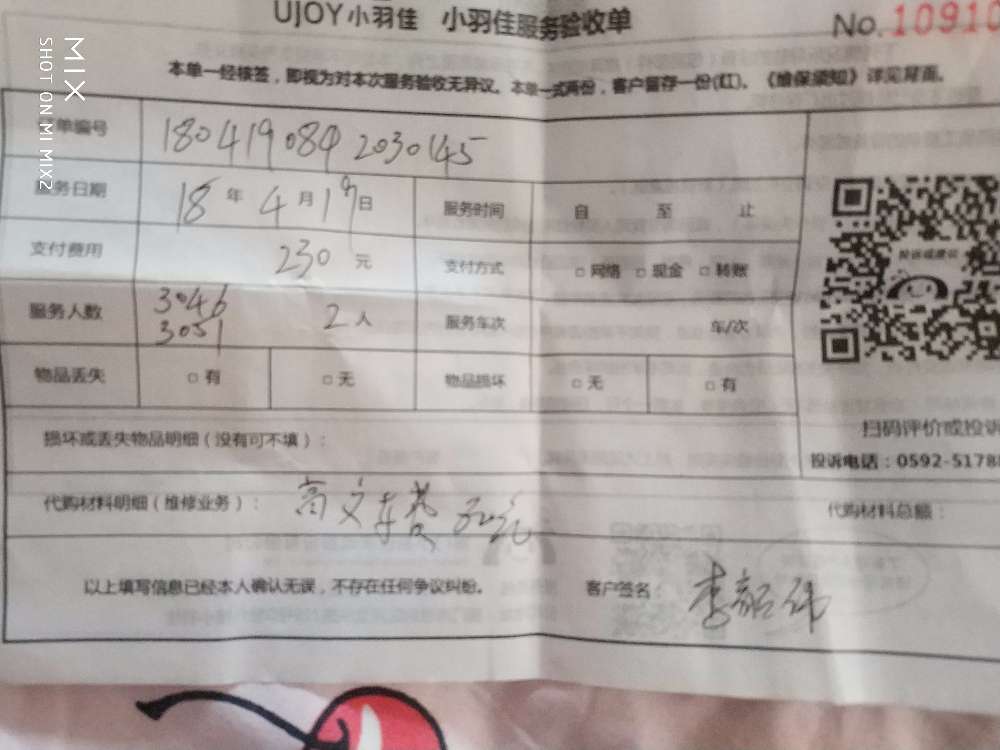 UJOY小羽佳 小羽佳服务验收单 No.10910
本单一经核签，即视为对本次服务验收无异议。本单一式两份，客户留存一份(红)。《维保须知》详见背面。
单编号 180419084 2030145
服务日期 18 年 4 月 19 日 服务时间 自 至 止
支付费用 230 元 支付方式 □ 网络 □ 现金 □ 转账
服务人数 3046 3051 2 人 服务车次 车/次
物品丢失 □ 有 □ 无 物品损坏 □ 无 □ 有
损坏或丢失物品明细（没有可不填）：
扫码评价或投诉
投诉电话：0592-5178
代购材料明细（维修业务）： 代购材料总额：
以上填写信息已经本人确认无误，不存在任何争议纠纷。 客户签名：
MIX
SHOT ON MI MIX2